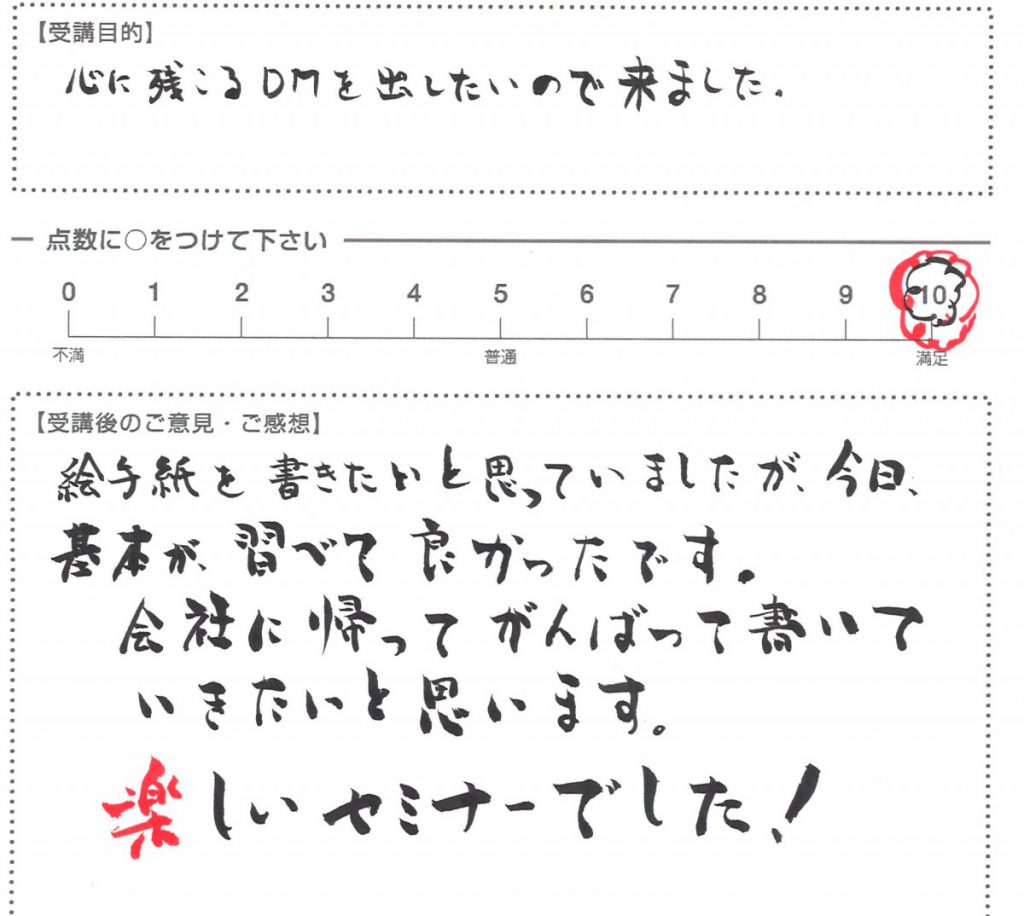 【受講目的】
心に残こるDMを出したいので来ました。
点数に○をつけて下さい
0 1 2 3 4 5 6 7 8 9 10
不満 普通 満足
【受講後のご意見・ご感想】
絵手紙を書きたいと思っていましたが、今日、
基本が、習べて良かったです。
会社に帰ってがんばって書いて
いきたいと思います。
楽しいセミナーでした!